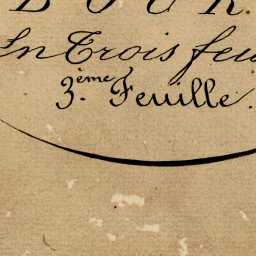 BOUR.
En Trois feu
3.ème Feuille.